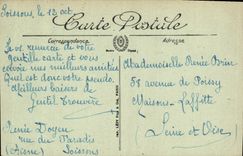 Soissons, le 12 oct.
Carte Postale
Correspondance
Adresse
Je vs remercie de votre
gentille carte et vous
envoie mes meilleurs amitiés
Quel est donc votre pseudo.
Meilleurs baisers de
Gentil Trouvère
Renée Doyen
rue du Paradis
(Aisne) Soissons
Mademoiselle Renée Brin
58 avenue de Poissy
Maisons-Laffitte
(Seine et Oise)